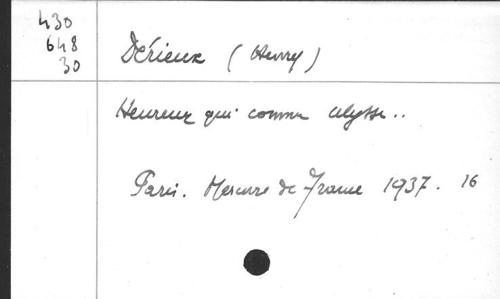 430
648
30
Dérieux (Henry)
Heureux qui comme Ulysse..
Paris. Mercure de France 1937. 16